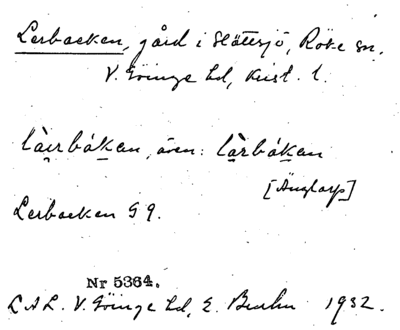 Lerbacken, gård i Slättsjö, Röke sn.
V. Göinge hd, Krist. l.
lài̯rbákan, även: là̱rbáḵan
[Änglarp]
Lerbacken G 9.
Nr 5364.
L A L. V. Göinge hd, E. 1932.